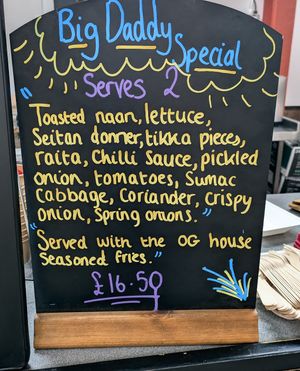 Big Daddy
Special
Serves 2
"Toasted naan, lettuce,
Seitan donner, tikka pieces,
raita, Chilli Sauce, pickled
onion, tomatoes, Sumac
Cabbage, Coriander, crispy
onion, Spring onions."
"Served with the OG house
Seasoned fries."
£16.50